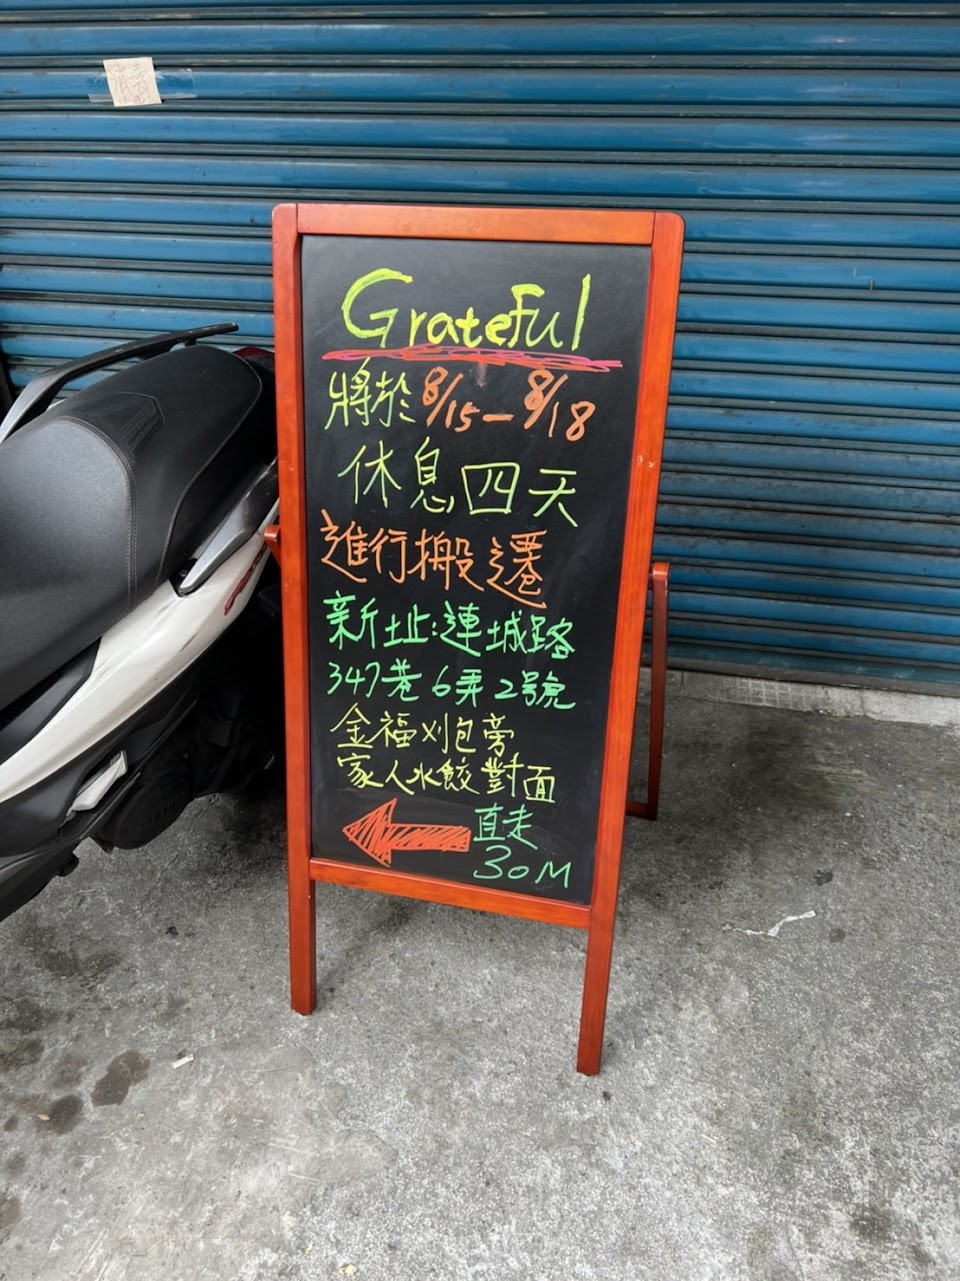 Grateful
將於8/15-8/18
休息四天
進行搬遷
新址:連城路
347巷6弄2號
金福刈包旁
家人水餃對面
直走
30M